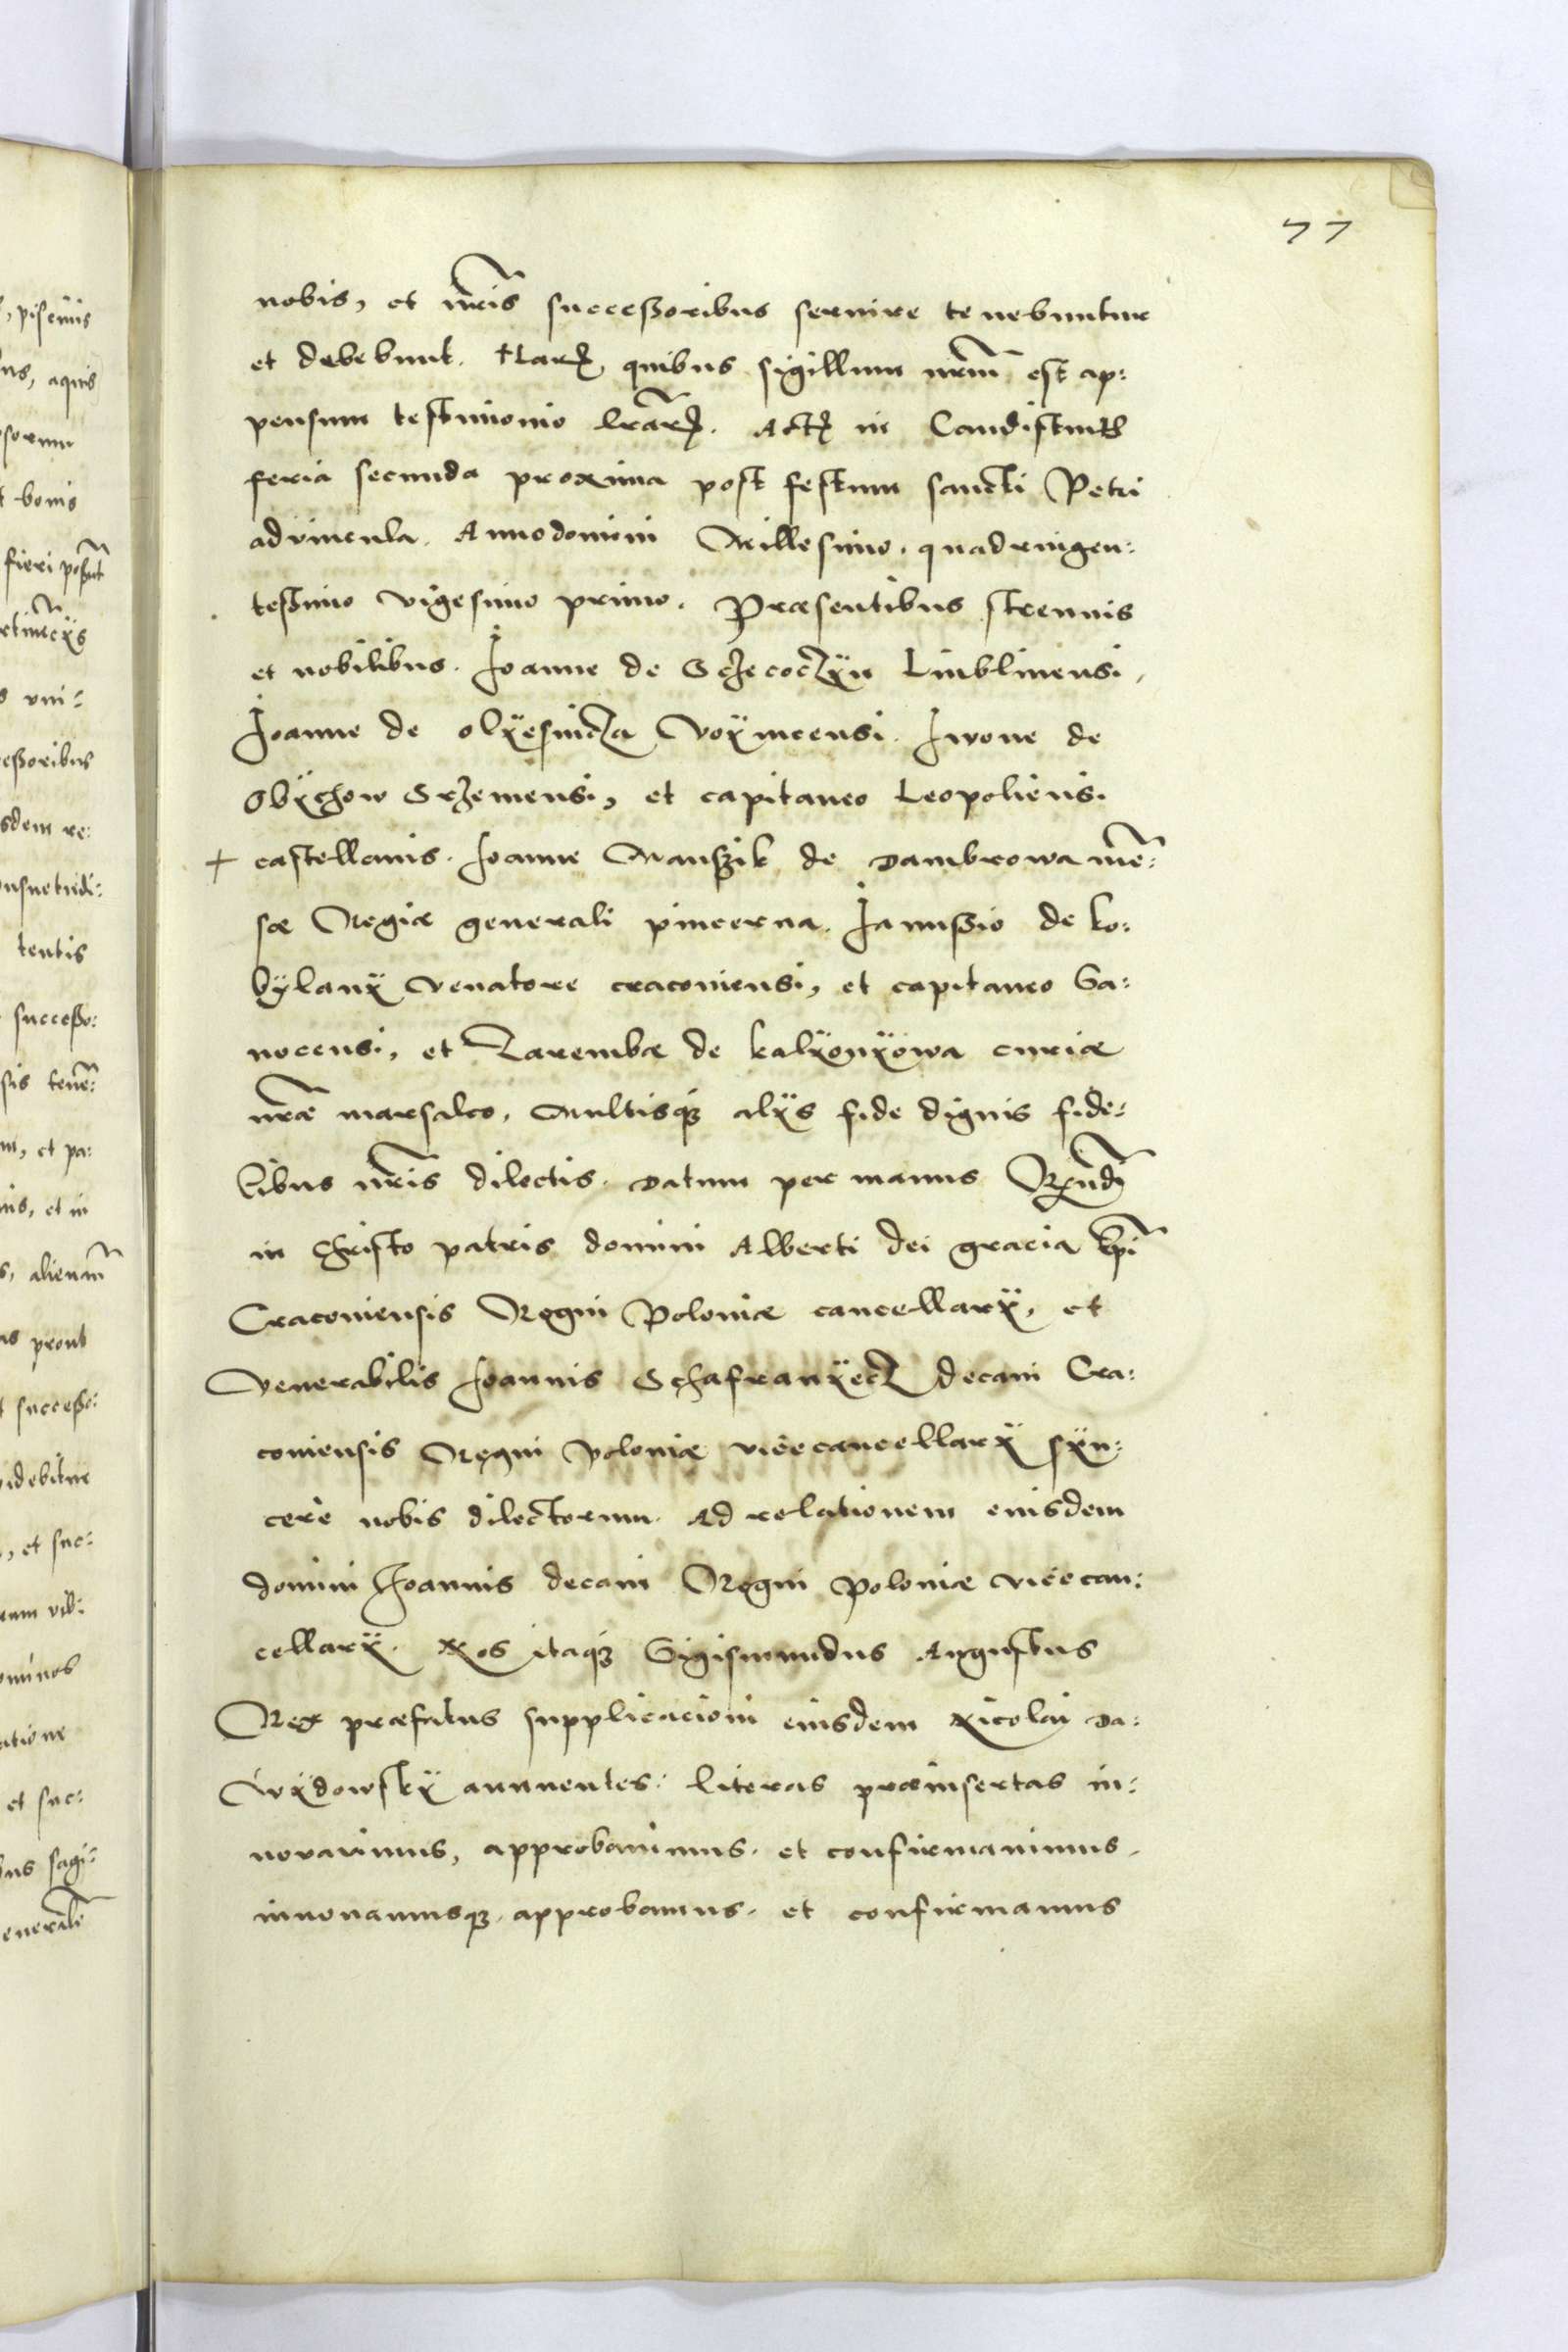 77
nobis, et nr̃is successoribus seruire tenebuntur
et debebunt. Harꝝ quibus sigillum nrm̃ est ap:
pensum testimonio lr̃arꝝ. Actꝝ in
feria secunda proxima post festum sancti Petri
advincula. Anno domini Millesimo, quadringen:
tessimo vigesimo primo. Præsentibus strenuis
et nobilibus. Joanne de Sczecoczÿn Linblinensi,
Joanne de olÿesnicza Voÿnicensi. Jwone de
Obÿchow Srzemensi, et capitaneo Leopoliensi
+ castellanis. Joanne Manszik de Dambrowa mẽ:
sæ Regiæ generali pincerna. Janussio de ko:
bÿlanÿ Venatore cracouiensi, et capitaneo Sa:
nocensi, et Zarembæ de kalÿonÿowa curiæ
nr̃æ marsalco, Multisqꝫ alÿs fide dignis fide:
libus nr̃is dilectis. Datum per manus Rx̃ndi
in Christo patris domini Alberti dei gracia Epĩ
Cracouiensis Regni Poloniæ cancellarÿ, et
Venerabilis Joannis Schafranÿecz decani Cra:
couiensis Regni Poloniæ vicecancellarÿ sÿn:
cerè nobis dilectorum. Ad relationem eiusdem
domini Joannis decani Regni Poloniæ vicecan:
cellarÿ. Nos itaqꝫ Sigismundus Augustus
Rex præfatus supplicacioni eiusdem Nicolai Da:
wÿdowskÿ annuentes: literas præinsertas in:
novauimus, approbauimus. et confirmauimus.
innouamusqꝫ. approbamus. et confirmamus
, piscinis
aquis
bonis
vni:
essoribus
sdem re:
tentis
successo:
, et pa:
et in
prout
successo:
, et suc:
et suc: